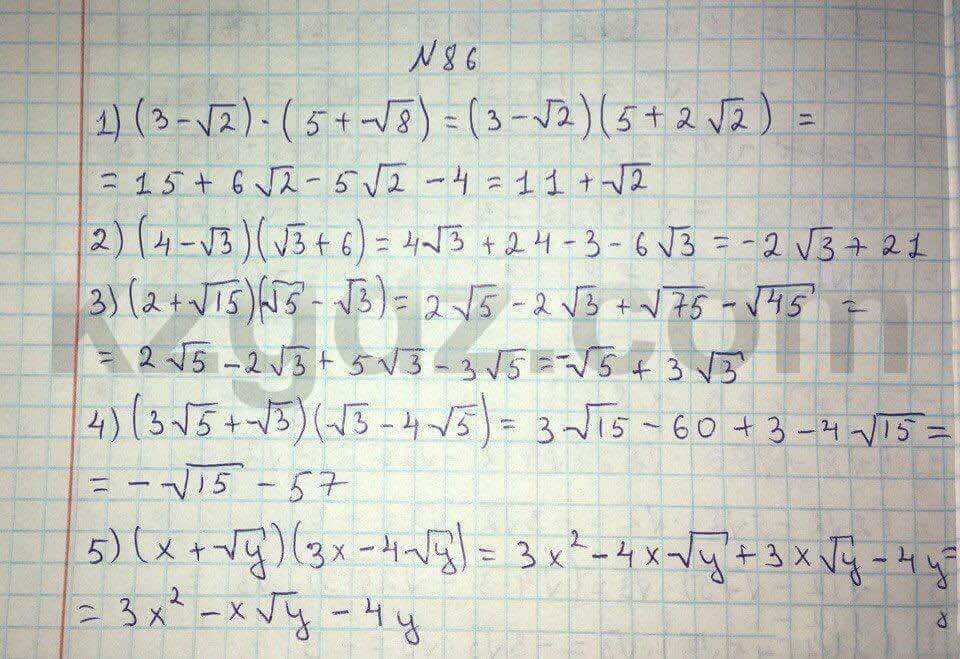 N86
1) (3-√2)·(5+√8)=(3-√2)(5+2√2)=
=15+6√2-5√2-4=11+√2
2) (4-√3)(√3+6)=4√3+24-3-6√3=-2√3+21
3) (2+√15)(√5-√3)=2√5-2√3+√75-√45=
=2√5-2√3+5√3-3√5=-√5+3√3
4) (3√5+√3)(√3-4√5)=3√15-60+3-4√15=
=-√15-57
5) (x+√y)(3x-4√y)=3x²-4x√y+3x√y-4y=
=3x²-x√y-4y
kzgdz.com